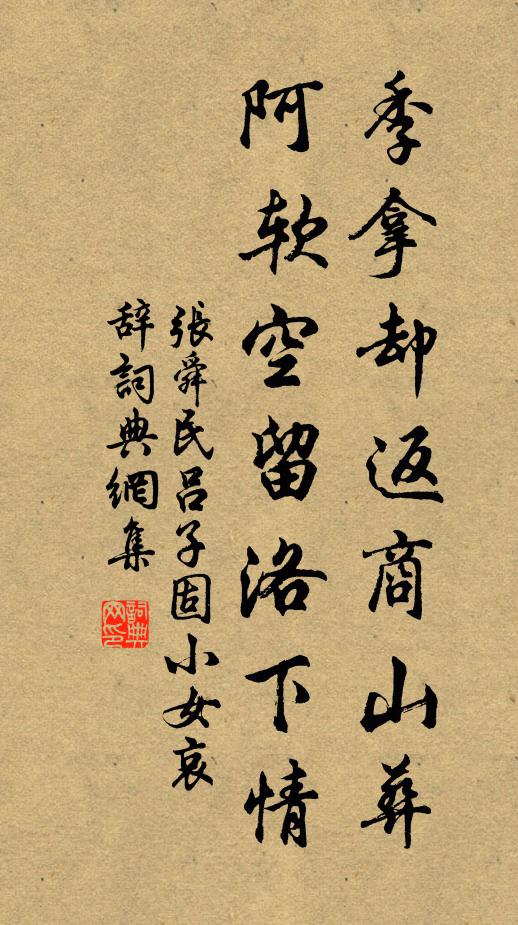 季拿却返商山葬
阿软空留洛下情
張舜民吕子固小女哀
辞詞典網集
詞典网印